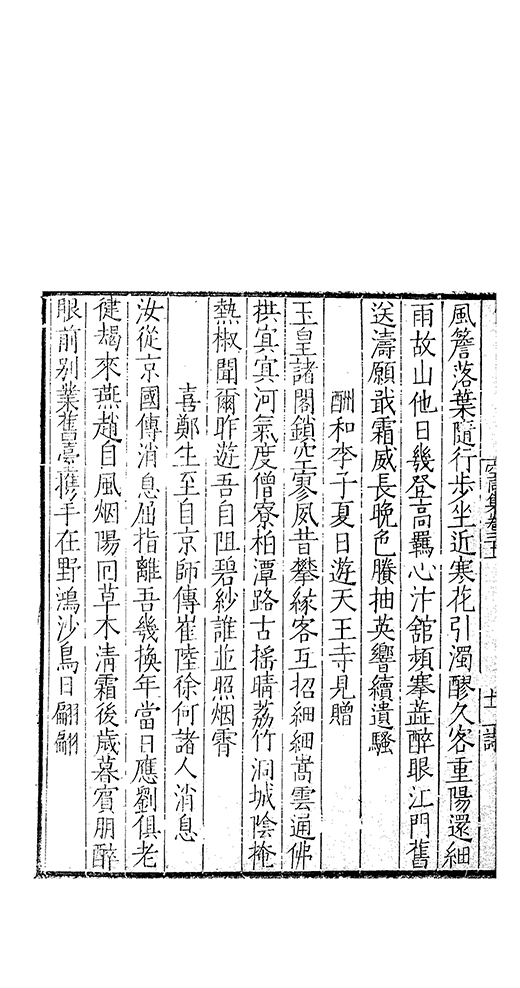 風簷落葉隨行步坐近寒花引濁醪久客重陽還細
雨故山他日幾登高羈心汴舘頻搴蘁醉眼江門舊
送濤願戢霜威長晚色賸抽英響續遺騷
酬和李子夏日遊天王寺見贈
玉皇諸閣鎖空寥夙昔攀緣客互招細細嵩雲通佛
拱寘寘河氣度僧寮柏潭路古摇晴荔竹洞城陰掩
熱椒聞爾昨遊吾自阻碧紗誰並照烟霄
喜鄭生至自京師傳崔陸徐何諸人消息
汝從京國傳消息屈指離吾幾換年當日應劉俱老
健朅來燕趙自風烟陽回草木清霜後歲暮賓朋醉
眼前别業舊臺擕手在野鴻沙鳥日翩翩
空同集卷三十五